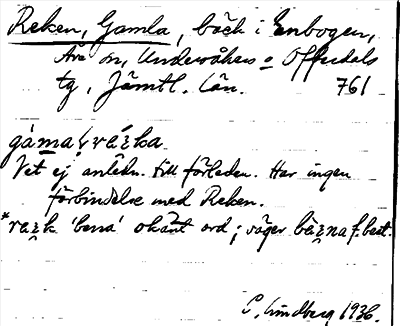 Reken, Gamla, bäck i Enbogen,
Åre sn, Undersåkers o Offerdals
tg, Jämtl. län. 761
gàma ɩ ræ̀ka
Vet ej anledn. till förleden. Har ingen
förbindelse med Reken.
okänt ord; säger f. best.
C. Lindberg 1936.